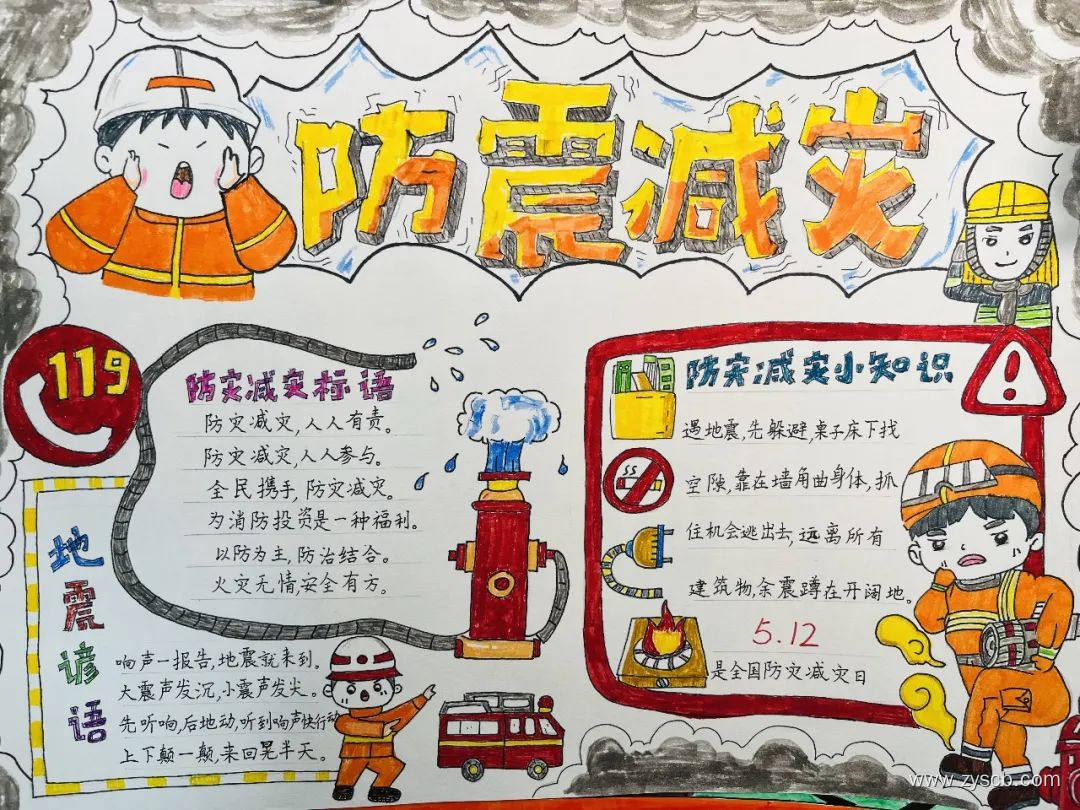 防震减灾
119
防灾减灾标语
防灾减灾,人人有责。
防灾减灾,人人参与。
全民携手,防灾减灾。
为消防投资是一种福利。
以防为主,防治结合。
火灾无情,安全有方。
地震谚语
响声一报告,地震就来到。
大震声发沉,小震声发尖。
先听响,后地动,听到响声快行动
上下颠一颠,来回晃半天。
防灾减灾小知识
遇地震,先躲避,桌子床下找
空隙,靠在墙角曲身体,抓
住机会逃出去,远离所有
建筑物,余震蹲在开阔地。
5.12
是全国防灾减灾日
www.zyscb.com